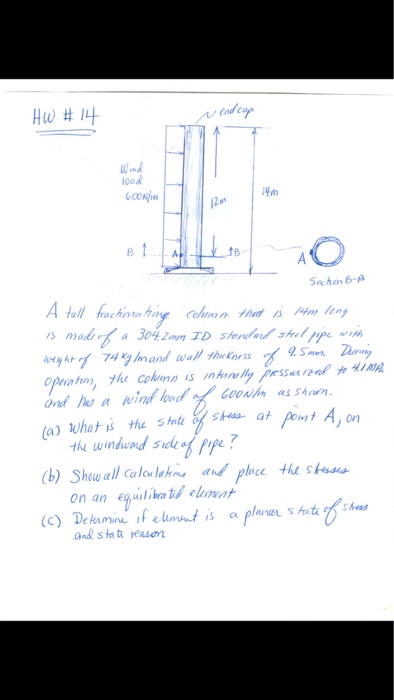 HW # 14
end cap
Wind
load
600N/m
12m
14m
B
A
B
A
Section B-B
A tall fractionating column that is 14m long
is made of a 304.2mm ID standard steel pipe with
weight of 74 kg/m and wall thickness of 9.5mm. During
operation, the column is internally pressurized to 4.1 MPa
and has a wind load of 600N/m as shown.
(a) What is the state of stress at point A, on
the windward side of pipe?
(b) Show all calculations and place the stresses
on an equilibrated element
(c) Determine if element is a planar state of stress
and state reason